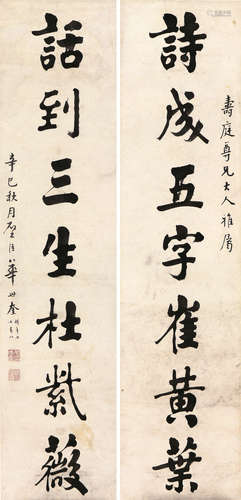 壽庭尊兄大人雅屬
詩成五字崔黃葉
話到三生杜紫薇
辛巳秋月 華世奎